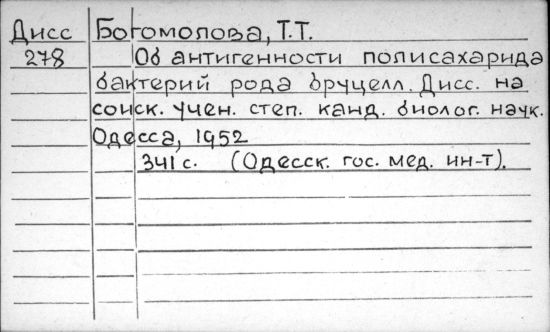 Дисс Богомолова, Т.Т.
278 Об антигенности полисахарида
бактерий рода бруцелл. Дисс. на
соиск. учен. степ. канд. биолог. наук.
Одесса, 1952
341 с. (Одесск. гос. мед. ин-т).